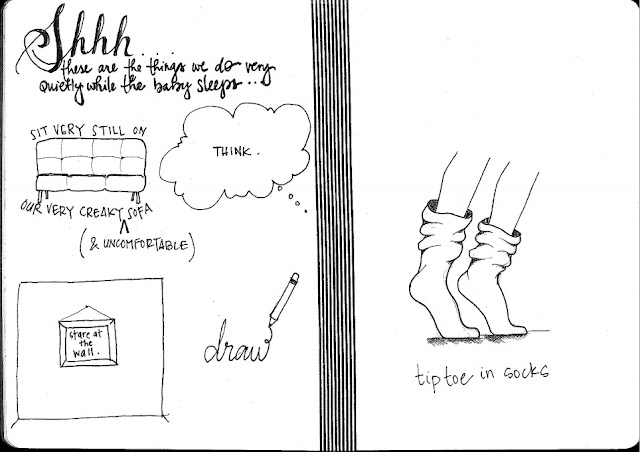 Shhh....
these are the things we do very
quietly while the baby sleeps...
SIT VERY STILL ON
OUR VERY CREAKY SOFA
(& UNCOMFORTABLE)
THINK.
stare at
the
wall.
draw
tiptoe in socks